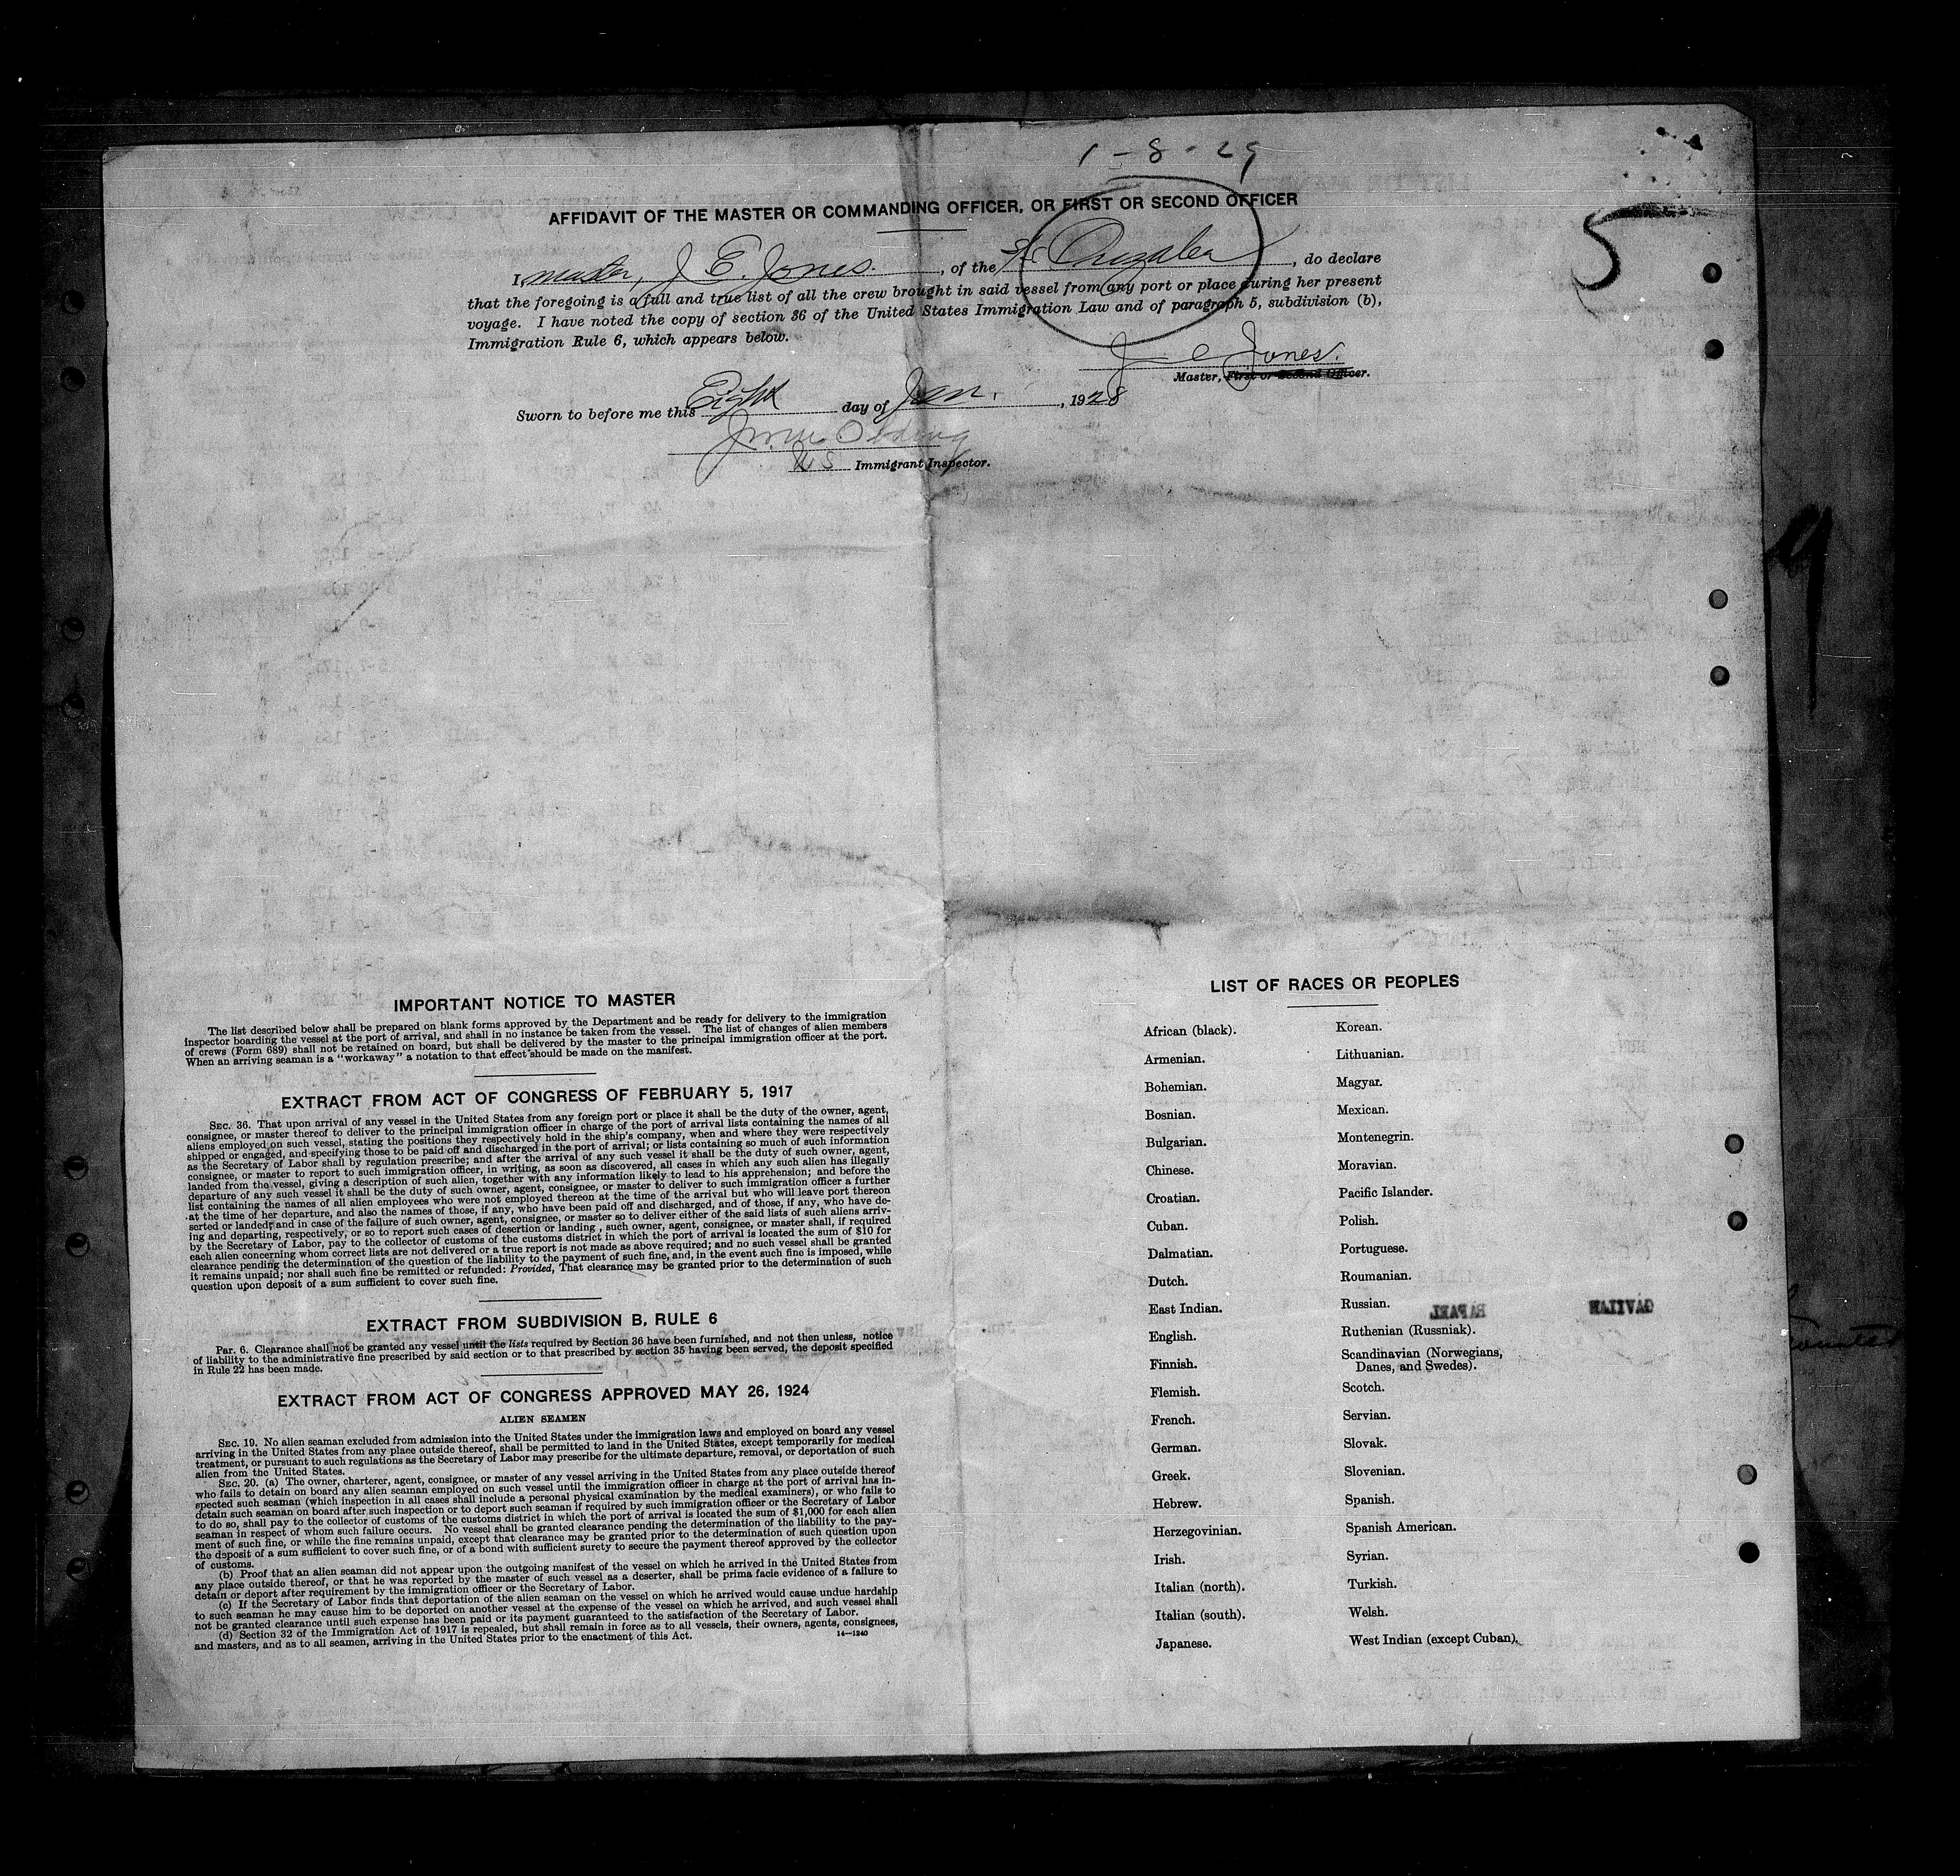 1-8-29
5
AFFIDAVIT OF THE MASTER OR COMMANDING OFFICER, OR FIRST OR SECOND OFFICER
I, master, J E. Jones. , of the S/S , do declare
that the foregoing is a full and true list of all the crew brought in said vessel from any port or place during her present
voyage. I have noted the copy of section 36 of the United States Immigration Law and of paragraph 5, subdivision (b),
Immigration Rule 6, which appears below.
J E Jones.
Master, First or Second Officer.
Sworn to before me this Eight day of Jan. , 1928
US Immigrant Inspector.
9
IMPORTANT NOTICE TO MASTER
The list described below shall be prepared on blank forms approved by the Department and be ready for delivery to the immigration
inspector boarding the vessel at the port of arrival, and shall in no instance be taken from the vessel. The list of changes of alien members
of crews (Form 689) shall not be retained on board, but shall be delivered by the master to the principal immigration officer at the port.
When an arriving seaman is a "workaway" a notation to that effect should be made on the manifest.
EXTRACT FROM ACT OF CONGRESS OF FEBRUARY 5, 1917
SEC. 36. That upon arrival of any vessel in the United States from any foreign port or place it shall be the duty of the owner, agent,
consignee, or master thereof to deliver to the principal immigration officer in charge of the port of arrival lists containing the names of all
aliens employed on such vessel, stating the positions they respectively hold in the ship's company, when and where they were respectively
shipped or engaged, and specifying those to be paid off and discharged in the port of arrival; or lists containing so much of such information
as the Secretary of Labor shall by regulation prescribe; and after the arrival of any such vessel it shall be the duty of such owner, agent,
consignee, or master to report to such immigration officer, in writing, as soon as discovered, all cases in which any such alien has illegally
landed from the vessel, giving a description of such alien, together with any information likely to lead to his apprehension; and before the
departure of any such vessel it shall be the duty of such owner, agent, consignee, or master to deliver to such immigration officer a further
list containing the names of all alien employees who were not employed thereon at the time of the arrival but who will leave port thereon
at the time of her departure, and also the names of those, if any, who have been paid off and discharged, and of those, if any, who have de-
serted or landed; and in case of the failure of such owner, agent, consignee, or master so to deliver either of the said lists of such aliens arriv-
ing and departing, respectively, or so to report such cases of desertion or landing , such owner, agent, consignee, or master shall, if required
by the Secretary of Labor, pay to the collector of customs of the customs district in which the port of arrival is located the sum of $10 for
each alien concerning whom correct lists are not delivered or a true report is not made as above required; and no such vessel shall be granted
clearance pending the determination of the question of the liability to the payment of such fine, and, in the event such fine is imposed, while
it remains unpaid; nor shall such fine be remitted or refunded: Provided, That clearance may be granted prior to the determination of such
question upon deposit of a sum sufficient to cover such fine.
EXTRACT FROM SUBDIVISION B, RULE 6
Par. 6. Clearance shall not be granted any vessel until the lists required by Section 36 have been furnished, and not then unless, notice
of liability to the administrative fine prescribed by said section or to that prescribed by section 35 having been served, the deposit specified
in Rule 22 has been made.
EXTRACT FROM ACT OF CONGRESS APPROVED MAY 26, 1924
ALIEN SEAMEN
SEC. 19. No alien seaman excluded from admission into the United States under the immigration laws and employed on board any vessel
arriving in the United States from any place outside thereof, shall be permitted to land in the United States, except temporarily for medical
treatment, or pursuant to such regulations as the Secretary of Labor may prescribe for the ultimate departure, removal, or deportation of such
alien from the United States.
SEC. 20. (a) The owner, charterer, agent, consignee, or master of any vessel arriving in the United States from any place outside thereof
who fails to detain on board any alien seaman employed on such vessel until the immigration officer in charge at the port of arrival has in-
spected such seaman (which inspection in all cases shall include a personal physical examination by the medical examiners), or who fails to
detain such seaman on board after such inspection or to deport such seaman if required by such immigration officer or the Secretary of Labor
to do so, shall pay to the collector of customs of the customs district in which the port of arrival is located the sum of $1,000 for each alien
seaman in respect of whom such failure occurs. No vessel shall be granted clearance pending the determination of the liability to the pay-
ment of such fine, or while the fine remains unpaid, except that clearance may be granted prior to the determination of such question upon
the deposit of a sum sufficient to cover such fine, or of a bond with sufficient surety to secure the payment thereof approved by the collector
of customs.
(b) Proof that an alien seaman did not appear upon the outgoing manifest of the vessel on which he arrived in the United States from
any place outside thereof, or that he was reported by the master of such vessel as a deserter, shall be prima facie evidence of a failure to
detain or deport after requirement by the immigration officer or the Secretary of Labor.
(c) If the Secretary of Labor finds that deportation of the alien seaman on the vessel on which he arrived would cause undue hardship
to such seaman he may cause him to be deported on another vessel at the expense of the vessel on which he arrived, and such vessel shall
not be granted clearance until such expense has been paid or its payment guaranteed to the satisfaction of the Secretary of Labor.
(d) Section 32 of the Immigration Act of 1917 is repealed, but shall remain in force as to all vessels, their owners, agents, consignees,
and masters, and as to all seamen, arriving in the United States prior to the enactment of this Act.
14—1240
LIST OF RACES OR PEOPLES
African (black).
Armenian.
Bohemian.
Bosnian.
Bulgarian.
Chinese.
Croatian.
Cuban.
Dalmatian.
Dutch.
East Indian.
English.
Finnish.
Flemish.
French.
German.
Greek.
Hebrew.
Herzegovinian.
Irish.
Italian (north).
Italian (south).
Japanese.
Korean.
Lithuanian.
Magyar.
Mexican.
Montenegrin.
Moravian.
Pacific Islander.
Polish.
Portuguese.
Roumanian.
Russian.
Ruthenian (Russniak).
Scandinavian (Norwegians,
Danes, and Swedes).
Scotch.
Servian.
Slovak.
Slovenian.
Spanish.
Spanish American.
Syrian.
Turkish.
Welsh.
West Indian (except Cuban).